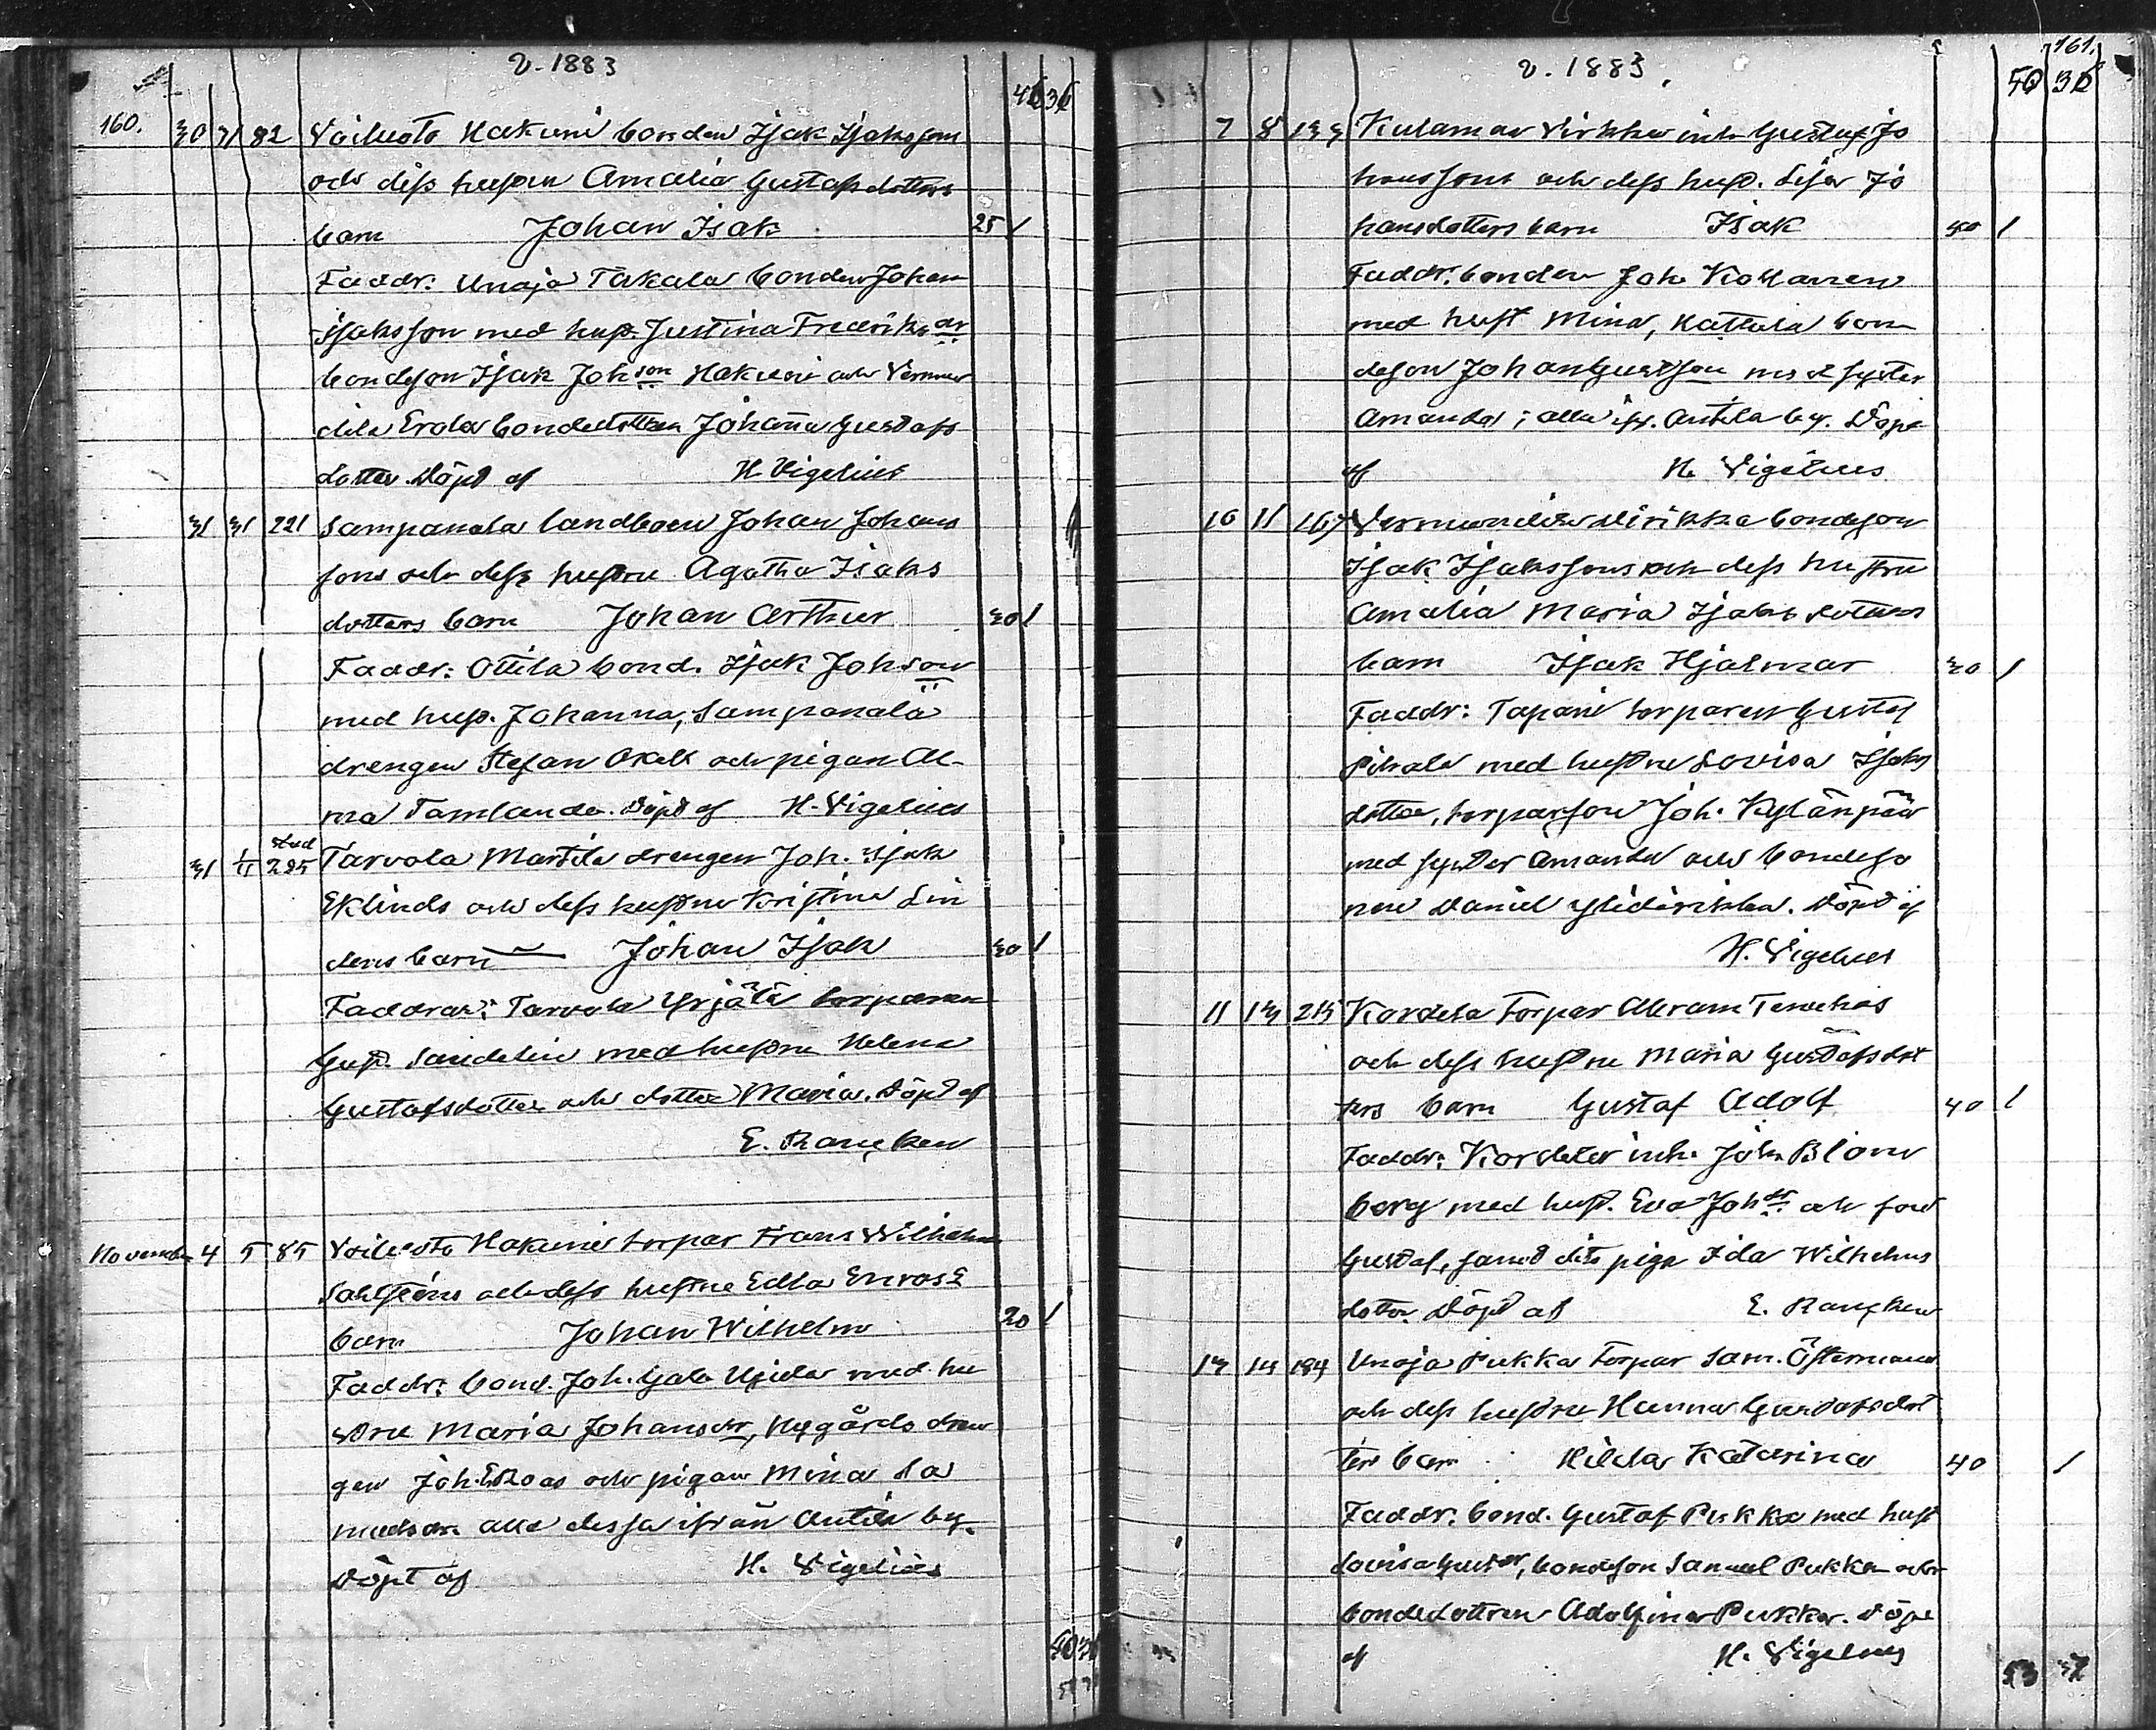 v. 1883
160. 30 31 82 Voiluoto Hakuni bonden Isak Isaksson
och dess hustru Amalia Gustafsdotters
barn Johan Isak 25 1
Faddr: Unaja Takala bonden Johan
Isaksson med hust. Justina Fredriksdr
bondeson Isak Johson Hakuni och Vermun
dila Erola bondedottern Johanna Gustafs
dotter Döpt af H. Vigelius
31 31 221 Sampanala landboen Johan Johans
sons och dess hustru Agatha Isaks
dotters barn Johan Arthur 30 1
Faddr: Ottila bond. Isak Johson
med hust. Johanna, Sampanala
drengen Stefan och pigan Al-
ma Tamlander. Döpt af H. Vigelius
31 1/11 225 Tarvola Martila drengen Joh. Isak
Eklinds och dess hustru Kristina Lin
dens barn Johan Isak 30 1
Faddrar: Tarvola Yrjälä torparen
Gust. Sandelin med hustru Helena
Gustafsdotter och dotter Maria. Döpt af
E. Rancken
November 4 5 85 Voiluoto Hakuni torpar Frans Wilhelm
Sahlsténs och dess hustru Edla Enros's
barn Johan Wilhelm 20 1
Faddr: bond. Joh. Gab. Ujula med hu
stru Maria Johansdr, Nygårds dren
gen Joh. och pigan Mina
alla dessa ifrån Antila by.
Döpt af H. Vigelius
v. 1883.
161.
7 8 133 Kulamaa Virkku inh Gustaf Jo
hanssons och dess hust. Lisa Jo
hansdotters barn Isak 40 1
Faddr: bonden Joh
med hust Mina, Kattila bon
deson Johan Gustson med syster
Amanda; alla ifr. Antila by. Döpt
af H. Vigelius
10 11 167 Vermundila Virikka bondeson
Isak Isakssons och dess hustru
Amalia Maria Isaksdotters
barn Isak Hjalmar 30 1
Faddr: Tapani torparen Gustaf
Pihala med hustru Lovisa Isaks
dotter, torparson Joh. Kylänpää
med syster Amanda och bondeso
nen Daniel Yli. Döpt af
H. Vigelius
11 13 215 Kordela Torpar Abram
och dess hustru Maria Gustafsdot
ters barn Gustaf Adolf 40 1
Faddr: Kordela inh. Joh. Blom
berg med hust. Eva Johdr och son
Gustaf, samt dito piga Ida Wilhelms
dotter Döpt af E. Rancken
13 14 184 Unaja Pukka Torpar Sam. Östermans
och dess hustru Hanna Gustafsdot
ters barn Hilda Katarina 40 1
Faddr: bond. Gustaf Pukka med hust
Lovisa Gustdr, bondeson Samuel Pukka och
bondedottren Adolfina Pukka. Döpt
af H. Vigelius
53 37